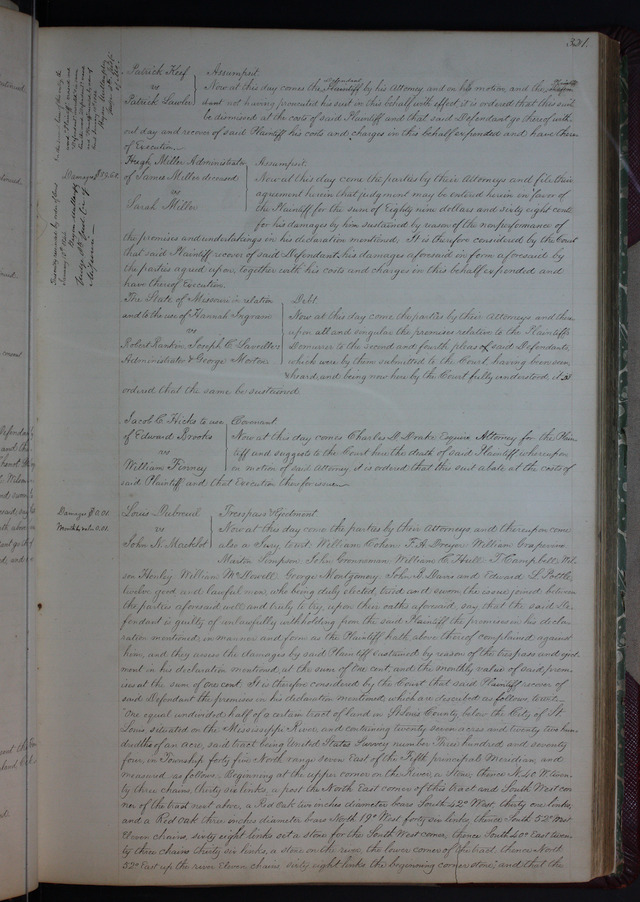 331.
Patrick Keef
vs
Patrick Lawler
Assumpsit.
Now at this day comes the Defendant by his Attorney and on his motion and the
not having prosecuted his suit in this behalf with effect it is ordered that this suit
be dismissed at the costs of said Plaintiff and that said Defendant go thereof with-
out day and recover of said Plaintiff his costs and charges in this behalf expended and have thereof Execution
Damages $89.68
Hugh Miller Administrator
of James Miller deceased
vs
Sarah Miller
Assumpsit
Now at this day come the parties by their Attorneys and file their
agreement herein that judgment may be entered herein in favor of
the Plaintiff for the sum of Eighty nine dollars and sixty eight cents
for his damages by him sustained by reason of the nonperformance of
the promises and undertakings in his declaration mentioned. It is therefore considered by the Court
that said Plaintiff recover of said Defendant his damages aforesaid in form aforesaid by
the parties agreed upon, together with his costs and charges in this behalf expended and
have thereof Execution.
The State of Missouri in relation
and to the use of Hannah Ingram
vs
Robert Rankin, Joseph C.
Administrator & George Morton
Debt
Now at this day come the parties by their Attorneys and there-
upon all and singular the premises relative to the Plaintiffs
Demurrer to the second and fourth pleas of said Defendants,
which were by them submitted to the Court, having been seen,
heard and being now here by the Court fully understood, it is
ordered that the same be sustained
Jacob C. Hicks to use
of Edward Brooks
vs
William Finney
Covenant
Now at this day comes Charles D. Drake Esquire Attorney for the Plain-
tiff and suggests to the Court here the death of said Plaintiff whereupon
on motion of said Attorney it is ordered that this suit abate at the costs of
said Plaintiff and that Execution therefor issue
Damages $0.01
Monthly value 0.01
Louis Dubreuil
vs
John N. Macklot
Trespass & Ejectment
Now at this day come the parties by their Attorneys and thereupon come
also a Jury towit William Cohen F. A. William
Martin Simpson John William C. Hull T. Campbell, Wil-
son Henley William McDowell George Montgomery John B. Davis and Edward L.
twelve good and lawful men, who being duly elected, tried and sworn the issue joined between
the parties aforesaid well and truly to try, upon their oaths aforesaid, say that the said De-
fendant is guilty of unlawfully withholding from the said Plaintiff the premises in his decla-
ration mentioned in manner and form as the Plaintiff hath above thereof complained against
him, and they assess the damages by said Plaintiff sustained by reason of the trespass and eject-
ment in his declaration mentioned, at the sum of One cent, and the monthly value of said prem-
ises at the sum of one cent. It is therefore considered by the Court that said Plaintiff recover of
said Defendant the premises in his declaration mentioned, which are described as follows, towit:
One equal undivided half of a certain tract of land in St Louis County, below the City of St.
Louis situated on the Mississippi River and containing twenty seven acres and twenty two hun-
dredths of an acre, said tract being United States Survey number Three hundred and seventy
four, in Township forty five North range seven East of the Fifth principal Meridian, and
measured as follows: Beginning at the upper corner on the River a stone, thence N. 40 W. twen-
ty three chains, thirty six links, a post the North East corner of this tract and South West cor-
ner of the tract next above, a Red Oak two inches diameter bears South 42° West, thirty one links,
and a Red Oak three inches diameter bears North 19° West forty six links, thence South 52° West
Eleven chains, sixty eight links set a stone for the South West corner, thence South 40° East twen-
ty three chains thirty six links, a stone on the river the lower corner of the tract thence North
52° East up the river Eleven chains, sixty eight links the beginning corner stone; and that the